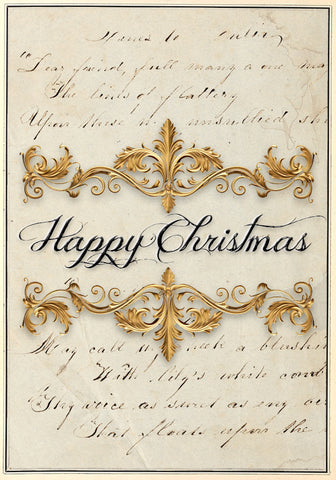 Lines to
"Dear friend, full many a one ma
The lines of flattery
Upon these un unsullied sh
Happy Christmas
May call up such a blushi
With lily's white comb
Thy voice as sweet as any
That floats upon the